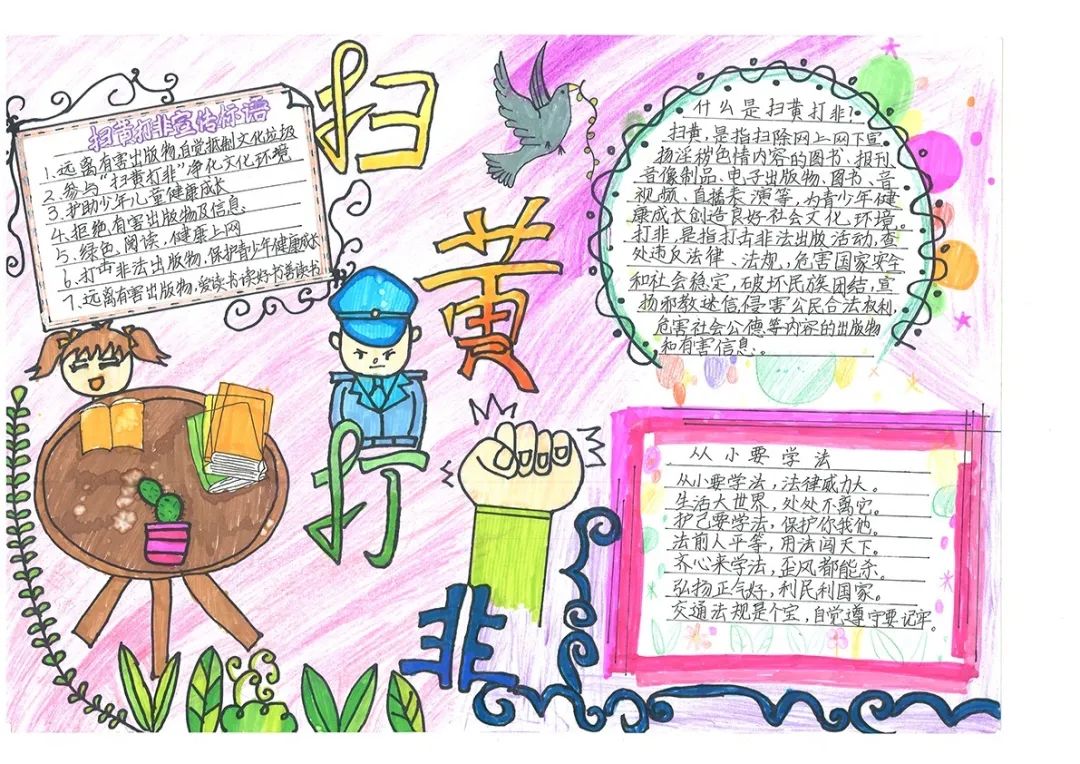 扫黄打非
扫黄打非宣传标语
1.远离有害出版物,自觉抵制文化垃圾
2.参与“扫黄打非”净化文化环境
3.护助少年儿童健康成长
4.拒绝有害出版物及信息
5.绿色阅读,健康上网
6.打击非法出版物,保护青少年健康成长
7.远离有害出版物,爱读书读好书善读书
什么是扫黄打非?
扫黄,是指扫除网上网下宣
扬淫秽色情内容的图书、报刊、
音像制品、电子出版物、图书、音
视频、直播表演等,为青少年健
康成长创造良好社会文化环境。
打非,是指打击非法出版活动,查
处违反法律、法规,危害国家安全
和社会稳定,破坏民族团结,宣
扬邪教迷信,侵害公民合法权利,
危害社会公德等内容的出版物
和有害信息。
从小要学法
从小要学法,法律威力大。
生活大世界,处处不离它。
护己要学法,保护你我他。
法前人平等,用法闯天下。
齐心来学法,歪风都能杀。
弘扬正气好,利民利国家。
交通法规是个宝,自觉遵守要记牢。